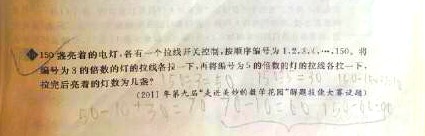 150盏亮着的电灯,各有一个拉线开关控制,按顺序编号为1,2,3,4,…,150。将
编号为3的倍数的灯的拉线各拉一下,再将编号为5的倍数的灯的拉线各拉一下,
拉完后亮着的灯数为几盏?
150÷3=50 150÷5=30
(2011年第九届"走进美妙的数学花园"解题技能大赛试题)
50-10+30=70 70-10=60